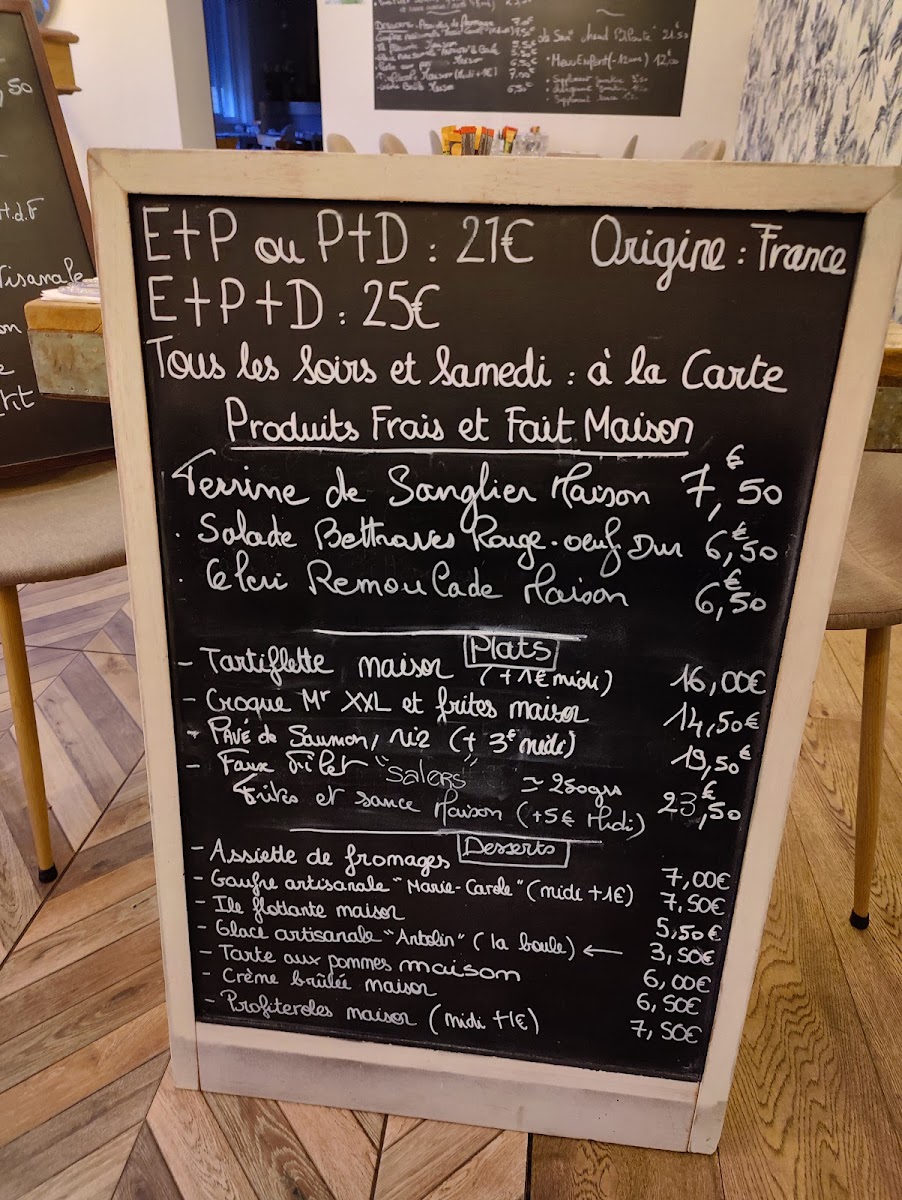 E+P ou P+D : 21€ Origine : France
E+P+D : 25€
Tous les soirs et Samedi : à la Carte
Produits Frais et Fait Maison
Terrine de Sanglier Maison 7,€50
. Salade Bettraves Rouge. oeuf Dur 6,€50
. Céleri Remoulade Maison 6,€50
Plats
- Tartiflette maison (+1€ midi) 16,00€
- Croque Mr XXL et frites maison 14,50€
- PAVÉ de Saumon, riz (+ 3€ midi) 19,50€
- Faux filet "Salers" ≃ 250grs
Frites et sauce Maison (+5€ Midi) 23,€50
Desserts
- Assiette de fromages 7,00€
- Gaufre artisanale "Marie-Carole" (midi +1€) 7,50€
- Ile flottante maison 5,50€
- Glace artisanale "Antolin" (la boule) ← 3,50€
- Tarte aux pommes maison 6,00€
- Crème brûlée maison 6,50€
- Profiteroles maison (midi +1€) 7,50€
,50
H.d.F
Menu Enfant (-12ans) 12,00